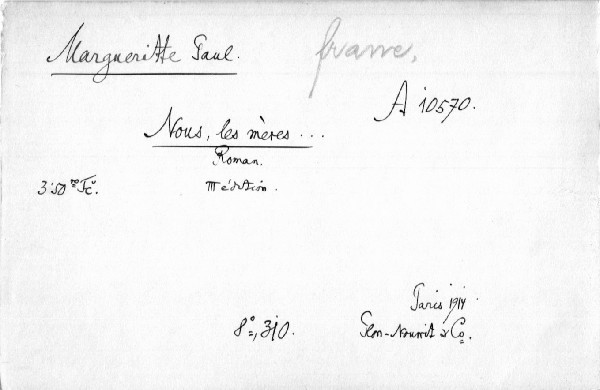 Margueritte Paul.
franne,
A 10570.
Nous, les mères...
Roman.
3·50 Fc.
III édition.
Paris 1914
8°, 310.
Plon-Nourrit & Co.